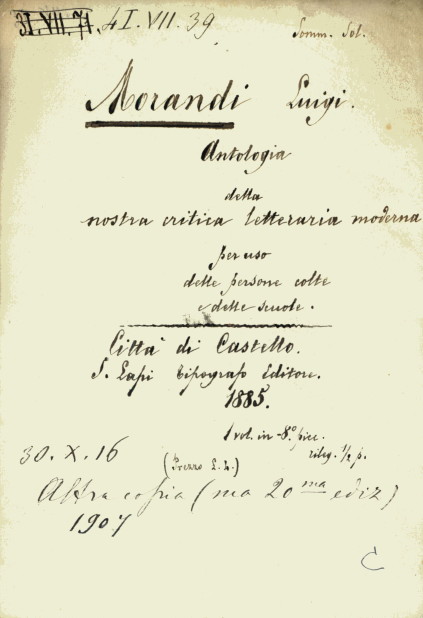 31. VII. 71. 41. VII. 39
Somm. Sol.
Morandi Luigi.
Antologia
della
nostra critica letteraria moderna
per uso
delle persone colte
e delle scuole.
Città di Castello.
S. Lapi tipografo Editore.
1885.
1 vol. in-8.° picc.
rileg. 1/2 p.
30. X. 16
(Prezzo £. 4.)
Altra copia (ma 20ma ediz)
1907
C